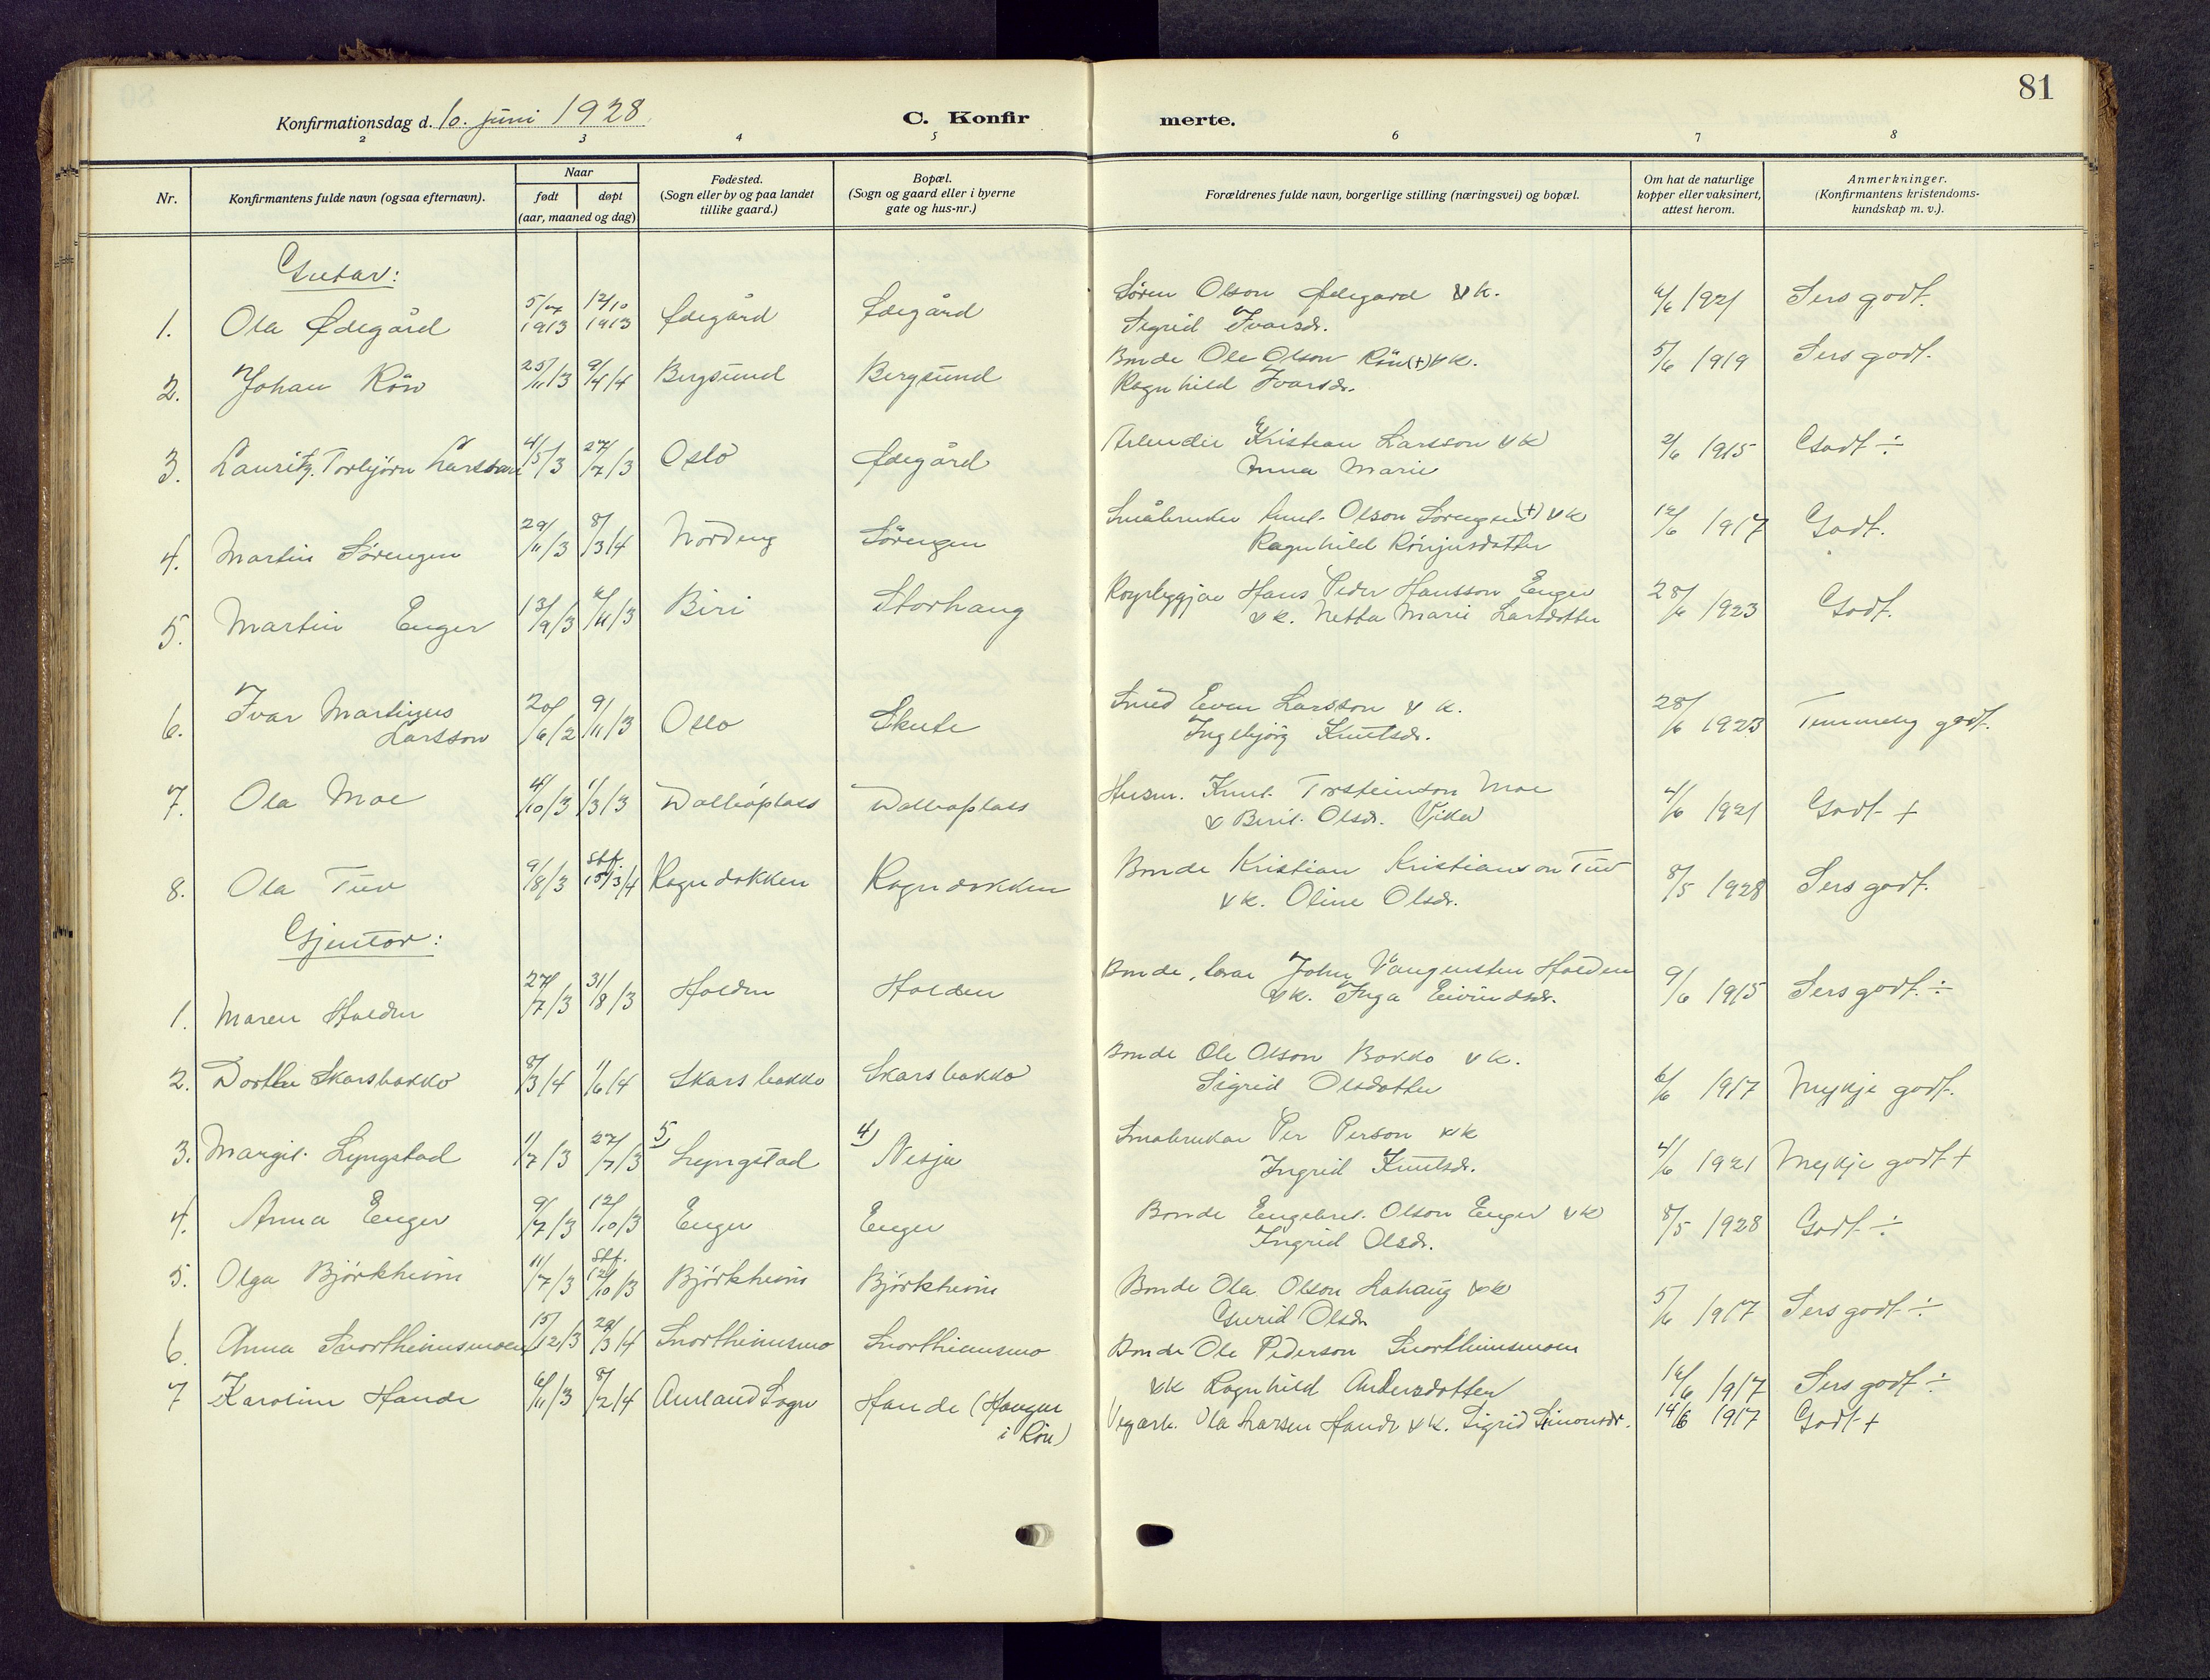 81
Konfirmationsdag d. 10. juni 1928
C. Konfirmerte.
2 3 4 5 6 7 8
Nr.
Konfirmantens fulde navn (ogsaa efternavn).
Naar
født døpt
(aar, maaned og dag)
Fødested.
(Sogn eller by og paa landet
tillike gaard.)
Bopæl.
(Sogn og gaard eller i byerne
gate og hus-nr.)
Forældrenes fulde navn, borgerlige stilling (næringsvei) og bopæl.
Om hat de naturlige
kopper eller vaksinert,
attest herom.
Anmerkninger.
(Konfirmantens kristendoms-
kundskap m. v.).
Gutar:
1. Ola Ødegård 1913 12/10 1913 Ødegård Ødegård Søren Olson Ødegard & K. 4/6 1921 Sers godt.
Sigrid Ivarsdr.
2. Johan Røn 25/11/3 9/4/4 Bergsund Bergsund Bonde Ole Olson Røn (+) & K. 5/6 1919 Sers godt.
Ragnhild Ivarsdr.
3. Lauritz Torbjørn Larsson 4/5/3 27/7/3 Oslo Ødegård Arbeider Kristian Larsson & K 2/6 1915 Godt ÷
Anna Marie
4. Martin Sørengen 29/11/3 8/3/4 Nordeng Sørengen Småbruker Knut Olson Sørengen (+) & K 12/6 1917 Godt.
Ragnhild Rönjusdotter
5. Martin Enger 13/9/3 /11/3 Biri Storhaug Hans Peder Hansson Enger 28/6 1923 Godt.
& K. Netta Marie Larsdotter
6. Ivar Martinus
Larsson 20/6/2 9/11/3 Oslo Skute Smed Even Larsson & K. 28/6 1923 Temmeleg godt.
Ingebjörg Knutsdr.
7. Ola Moe 4/10/3 1/3/3 Dalhaplass Dalhaplass Husm. Knut Torsteinson Moe 4/6 1921 Godt +
& Berit Olsdr. Vika
8. Ola Tuv 9/8/3 Stf. 15/3/4 Ragndokken Ragndokken Bonde Kristian Kristianson Tuv 8/5 1928 Sers godt.
& K. Oline Olsdr.
Gjentor:
1. Maren Holden 27/7/3 31/8/3 Holden Holden Bonde, lærar John Vangensten Holden 9/6 1915 Sers godt ÷
& K. Inga Eivindsdr.
2. Dorthe Skarsbakko 8/3/4 1/6/4 Skarsbakko Skarsbakko Bonde Ole Olson Bakko & K. 6/6 1917 Mykje godt.
Sigrid Olsdotter
3. Margit Lyngstad 11/7/3 27/7/3 5) Lyngstad 4) Nesja Småbrukar Per Person & K 4/6 1921 Mykje godt +
Ingrid Knutsdr.
4. Anna Enger 9/7/3 12/10/3 Enger Enger Bonde Engebret Olson Enger & K 8/5 1928 Godt ÷
Ingrid Olsdr.
5. Olga Björkheim 11/7/3 Stf. 12/10/3 Björkheim Björkheim Bonde Ola Olson Lohaug & K 5/6 1917 Sers godt ÷
Gurid Olsdr
6. Anna Snortheimsmoen 15/12/3 29/3/4 Snortheimsmo Snortheimsmo Bonde Ole Pederson Snortheimsmoen
& K Ragnhild Andersdotter 12/6 1917 Sers godt ÷
7 Karoline Hande /11/3 8/2/4 Aurland Sogn Hande (Haugen
i Røn) Vegarb. Ola Larsen Hande & K. Sigrid Simonsdr. 14/6 1917 Godt +